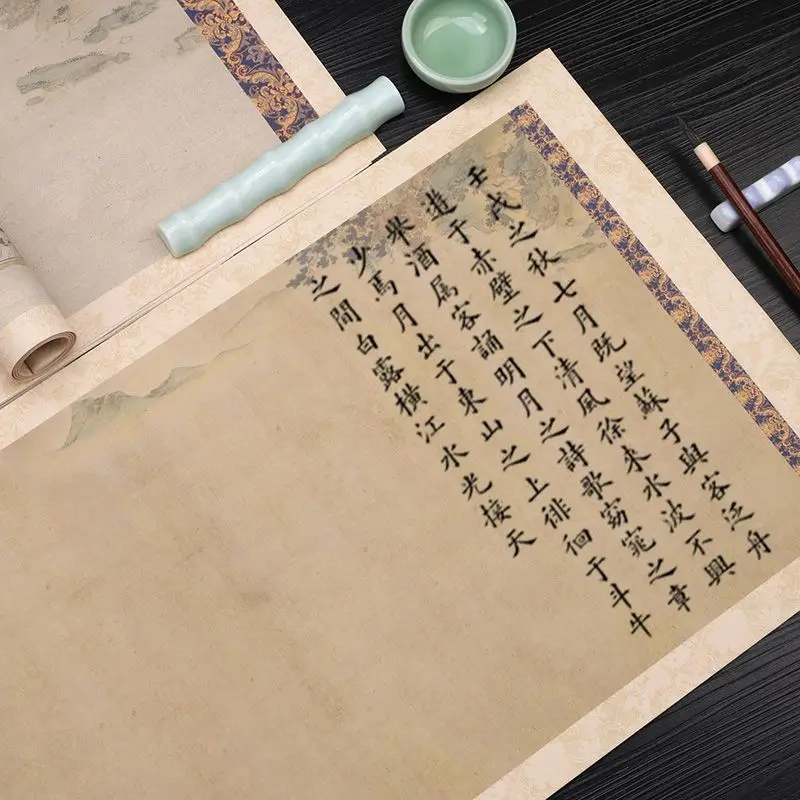 壬戌之秋七月既望蘇子與客泛舟
遊于赤壁之下清風徐来水波不興
舉酒属客誦明月之詩歌窈窕之章
少焉月出于東山之上徘徊于斗牛
之間白露橫江水光接天